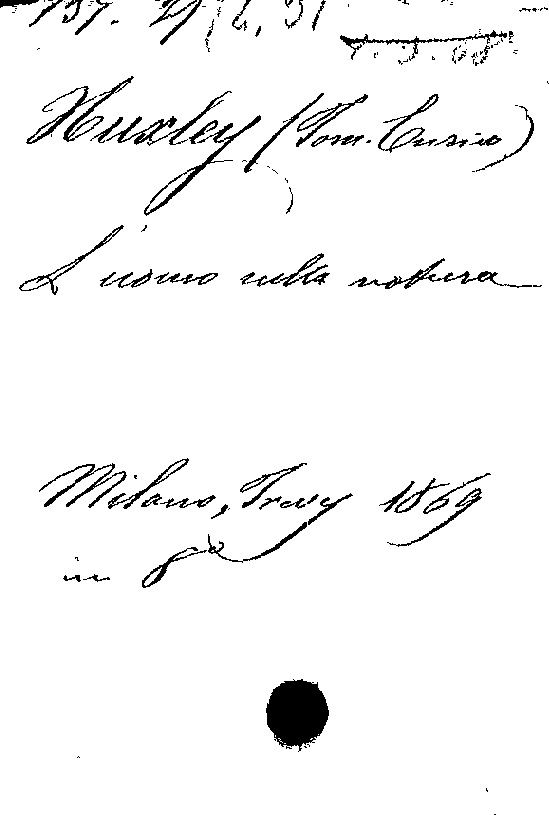 Huxley (Tom. Enrico)
L'uomo nella natura
Milano, Trevy 1869
in 8°